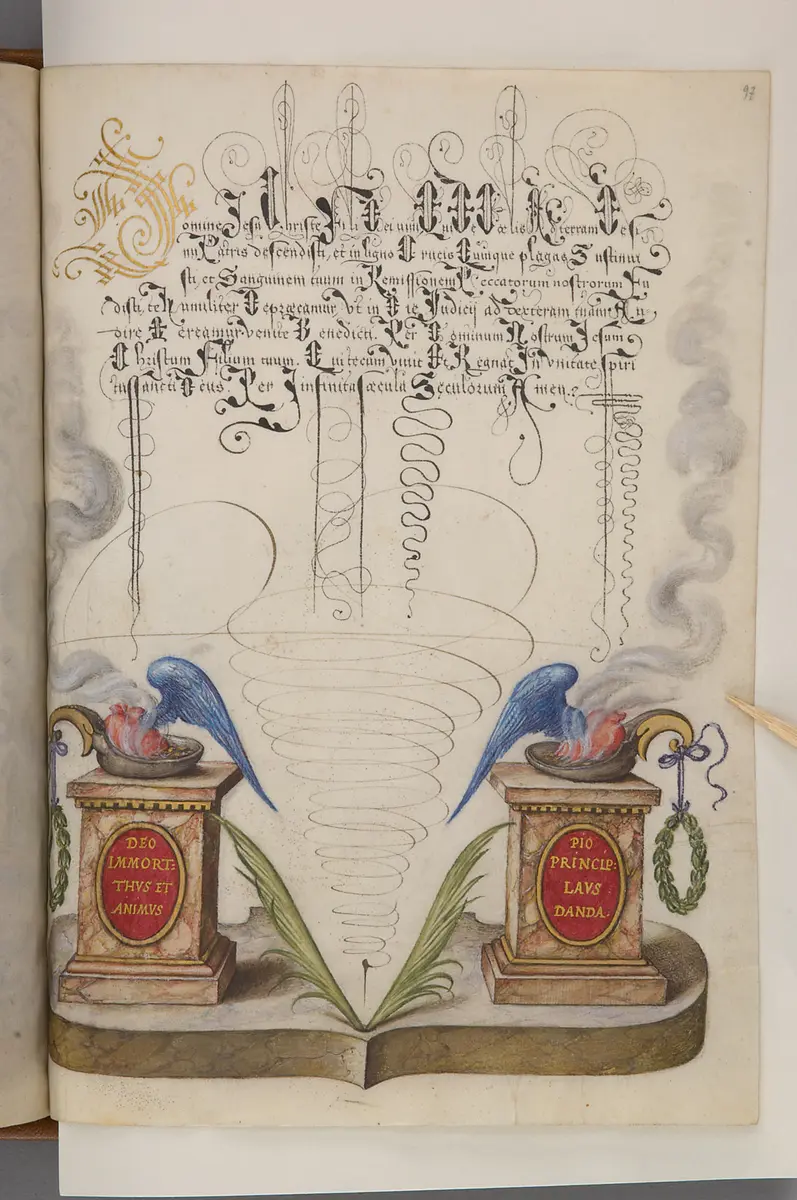 92
Domine Jesu Christe Fili Dei uiui Qui De Cœlis Ad terram De Si-
nu Patris descendisti, et in ligno Crucis Quinque plagas Sustinui
sti, et Sanguinem tuum in Remissionem Peccatorum nostrorum Fu
disti, te Humiliter Depræcamur, Vt in Die Judicij ad Dexteram tuam Au
dire Mereamur, Venite Benedicti. Per Dominum Nostrum Jesum
Christum Filium tuum. Qui tecum Viuit Et Regnat In Vnitate Spiri
tus sancti Deus. Per Infinita sæcula Seculorum Amen.
DEO
IMMORT:
THVS ET
ANIMVS
PIO
PRINCIP:
LAVS
DANDA.